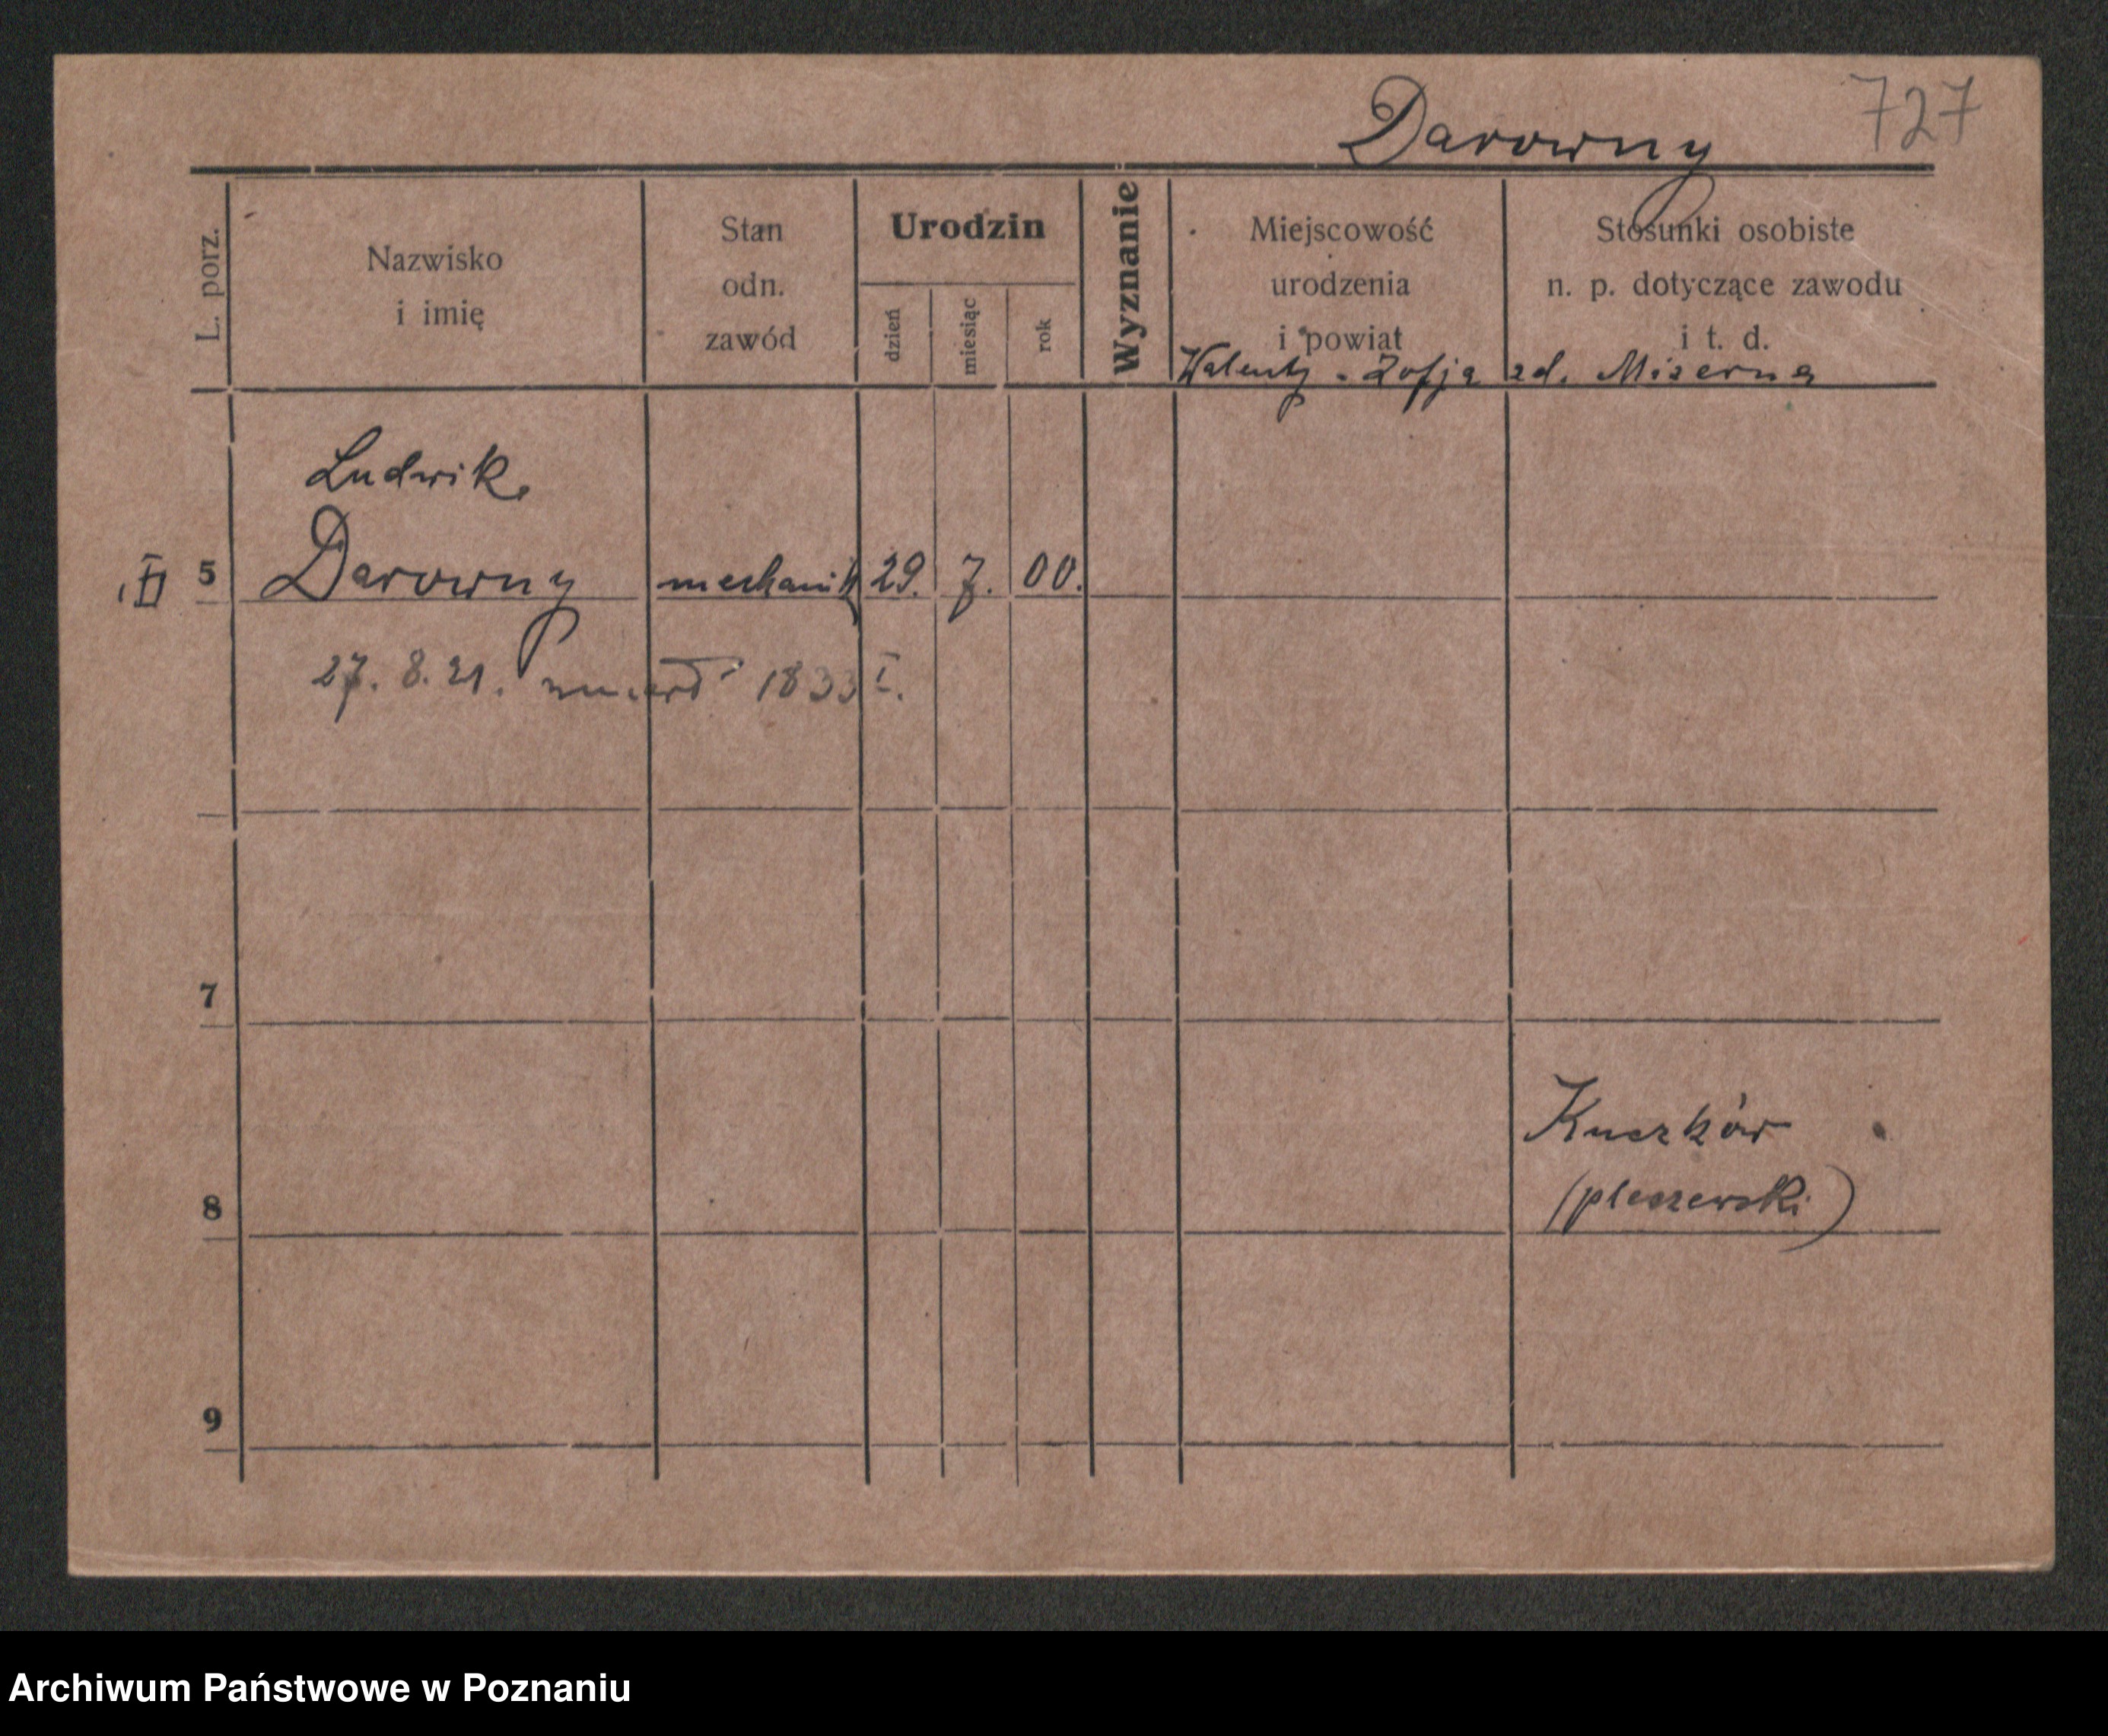 Darowny
727
L. porz.
Nazwisko
i imię
Stan
odn.
zawód
Urodzin
dzień
miesiąc
rok
Wyznanie
Miejscowość
urodzenia
i powiat
Stosunki osobiste
n. p. dotyczące zawodu
i t. d.
Walenty - Zofja zd. Mizerna
Ludwik
5 Darowny mechanik 29. 7. 00.
27. 8. 21. umarł 1833 I.
7
Kuczków
8 (pleszewski)
9
Archiwum Państwowe w Poznaniu